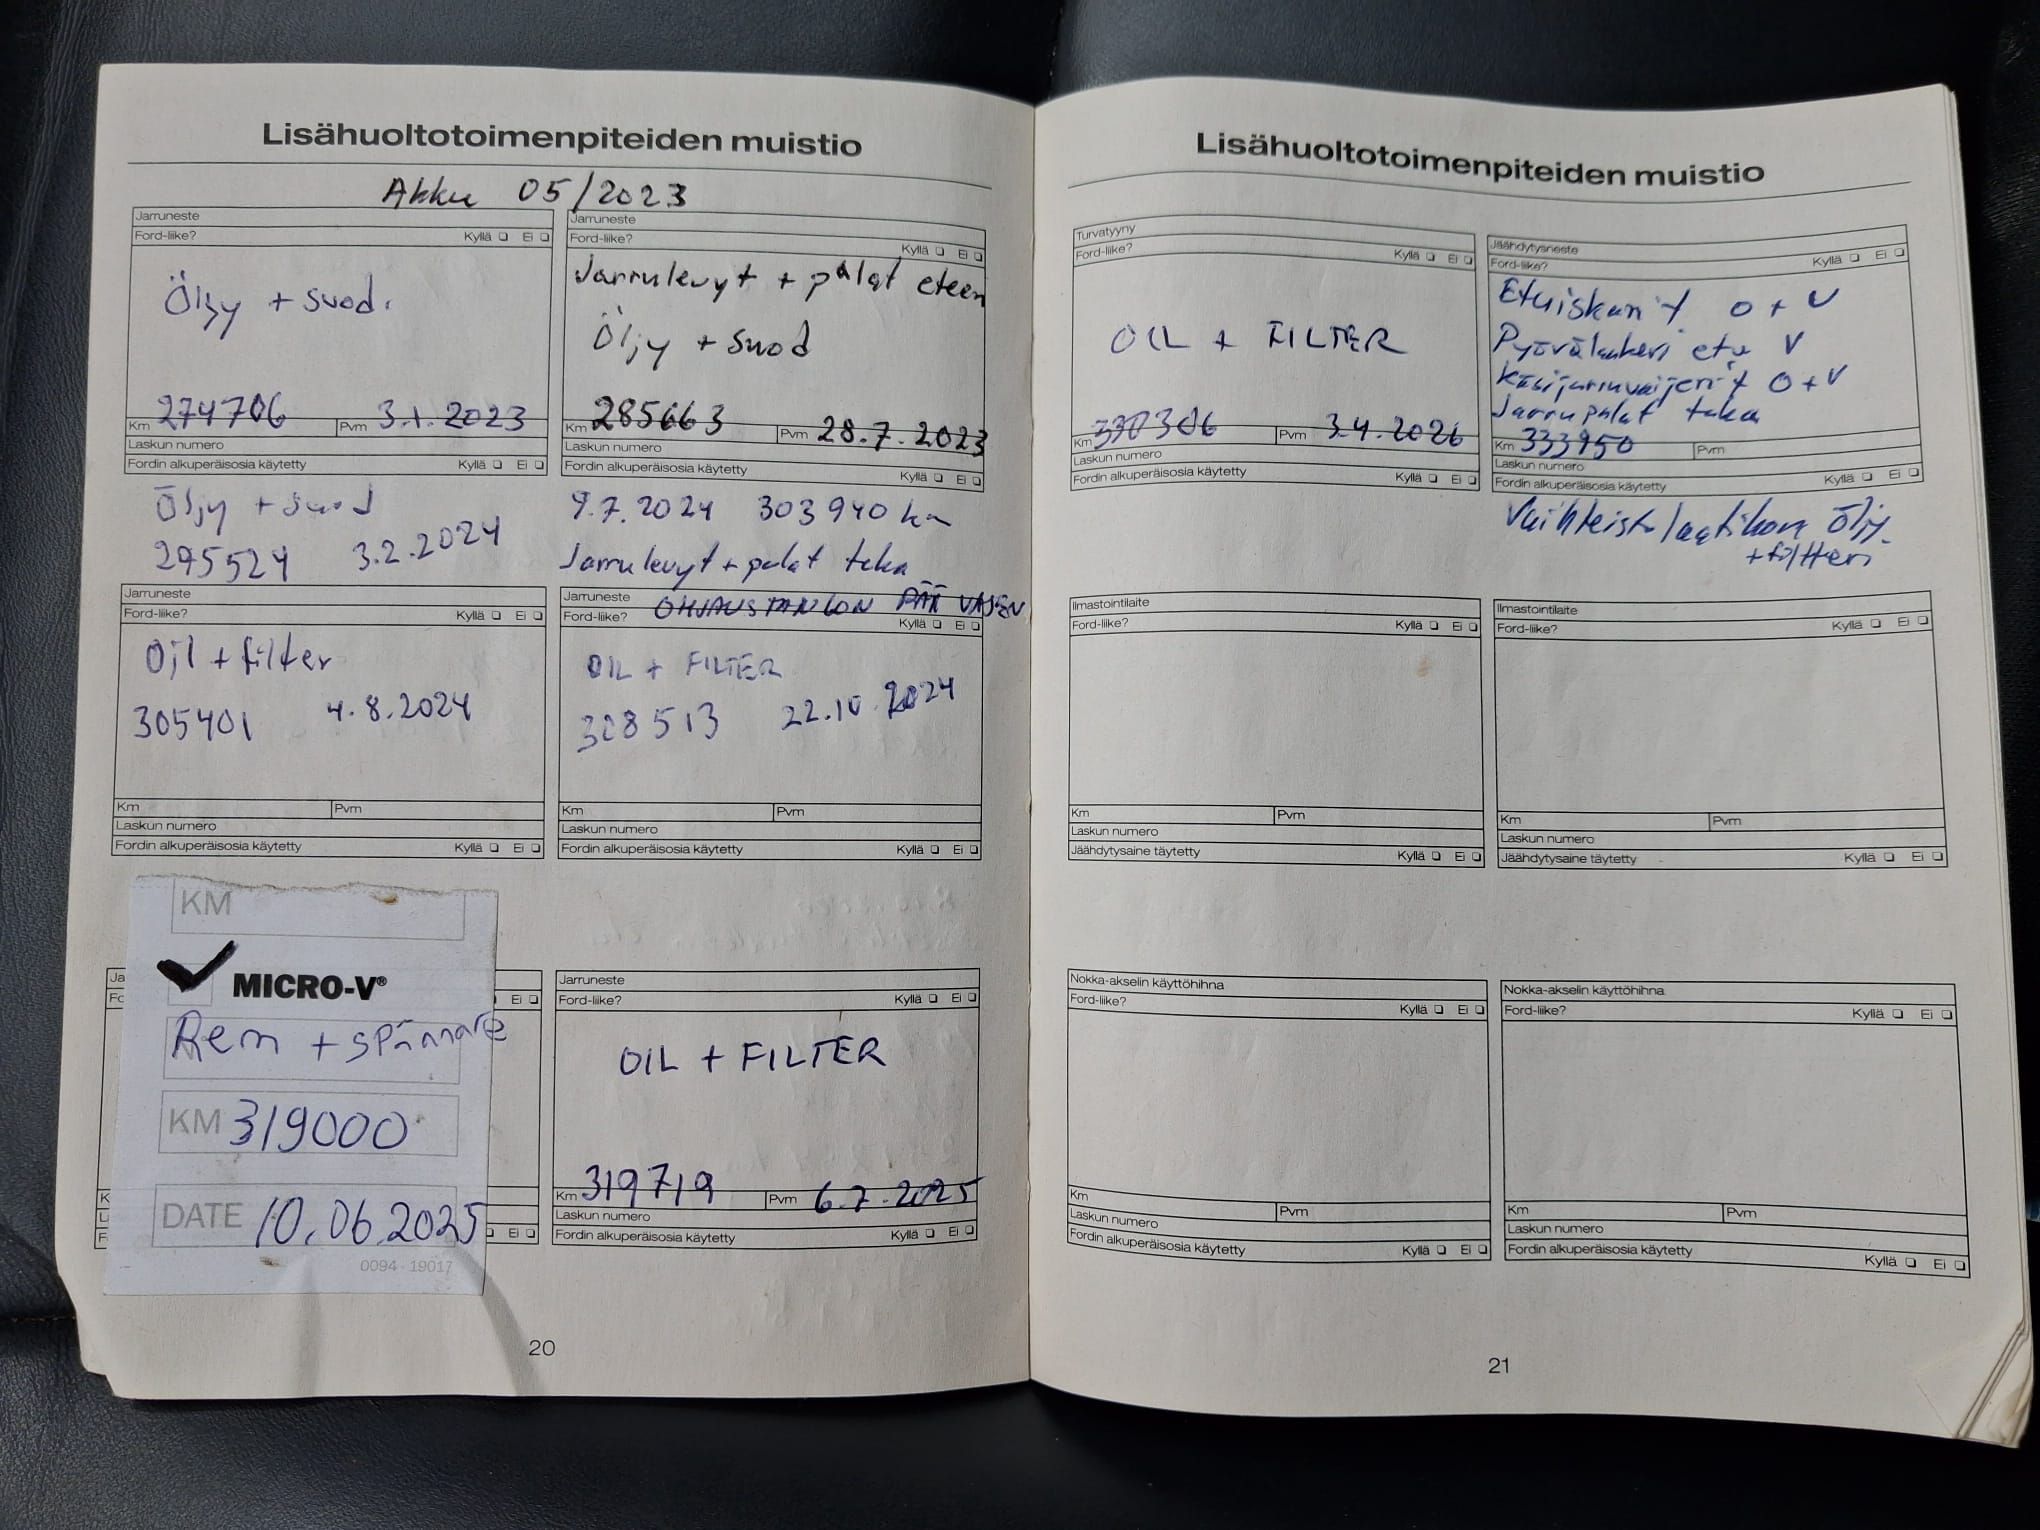 Lisähuoltotoimenpiteiden muistio
Akku 05/2023
Jarruneste
Ford-liike? Kyllä ❑ Ei ❑
Öljy + suod.
Km 274706 Pvm 3.1.2023
Laskun numero
Fordin alkuperäisosia käytetty Kyllä ❑ Ei ❑
Öljy + suod
295524 3.2.2024
Jarruneste
Ford-liike? Kyllä ❑ Ei ❑
Jarrulevyt + palat eteen
Öljy + suod
Km 285663 Pvm 28.7.2023
Laskun numero
Fordin alkuperäisosia käytetty Kyllä ❑ Ei ❑
9.7.2024 303940 km
Jarrulevyt + palat taka
OHJAUSTANGON PÄÄ VASEN
Jarruneste
Ford-liike? Kyllä ❑ Ei ❑
Oil + filter
305401 4.8.2024
Km Pvm
Laskun numero
Fordin alkuperäisosia käytetty Kyllä ❑ Ei ❑
Jarruneste
Ford-liike? Kyllä ❑ Ei ❑
OIL + FILTER
22.10.2024
Km Pvm
Laskun numero
Fordin alkuperäisosia käytetty Kyllä ❑ Ei ❑
KM
MICRO-V®
Rem + spännare
KM 319000
DATE 10.06.2025
0094 - 19017
Ja
Fo
Ei ❑
K
L
F
Ei ❑
Jarruneste
Ford-liike? Kyllä ❑ Ei ❑
OIL + FILTER
Km 319719 Pvm 6.7.2025
Laskun numero
Fordin alkuperäisosia käytetty Kyllä ❑ Ei ❑
20
Lisähuoltotoimenpiteiden muistio
Turvatyyny
Ford-liike? Kyllä ❑ Ei ❑
OIL + FILTER
Km 330306 Pvm 3.4.2026
Laskun numero
Fordin alkuperäisosia käytetty Kyllä ❑ Ei ❑
Jäähdytysneste
Ford-liike? Kyllä ❑ Ei ❑
Etuiskarit O + V
Pyörälaakeri etu V
Käsijarruvaijerit O + V
Jarrupalat taka
Km 333950 Pvm
Laskun numero
Fordin alkuperäisosia käytetty Kyllä ❑ Ei ❑
Vaihteistolaatikon öljy
+ filtteri
Ilmastointilaite
Ford-liike? Kyllä ❑ Ei ❑
Km Pvm
Laskun numero
Jäähdytysaine täytetty Kyllä ❑ Ei ❑
Ilmastointilaite
Ford-liike? Kyllä ❑ Ei ❑
Km Pvm
Laskun numero
Jäähdytysaine täytetty Kyllä ❑ Ei ❑
Nokka-akselin käyttöhihna
Ford-liike? Kyllä ❑ Ei ❑
Km Pvm
Laskun numero
Fordin alkuperäisosia käytetty Kyllä ❑ Ei ❑
Nokka-akselin käyttöhihna
Ford-liike? Kyllä ❑ Ei ❑
Km Pvm
Laskun numero
Fordin alkuperäisosia käytetty Kyllä ❑ Ei ❑
21